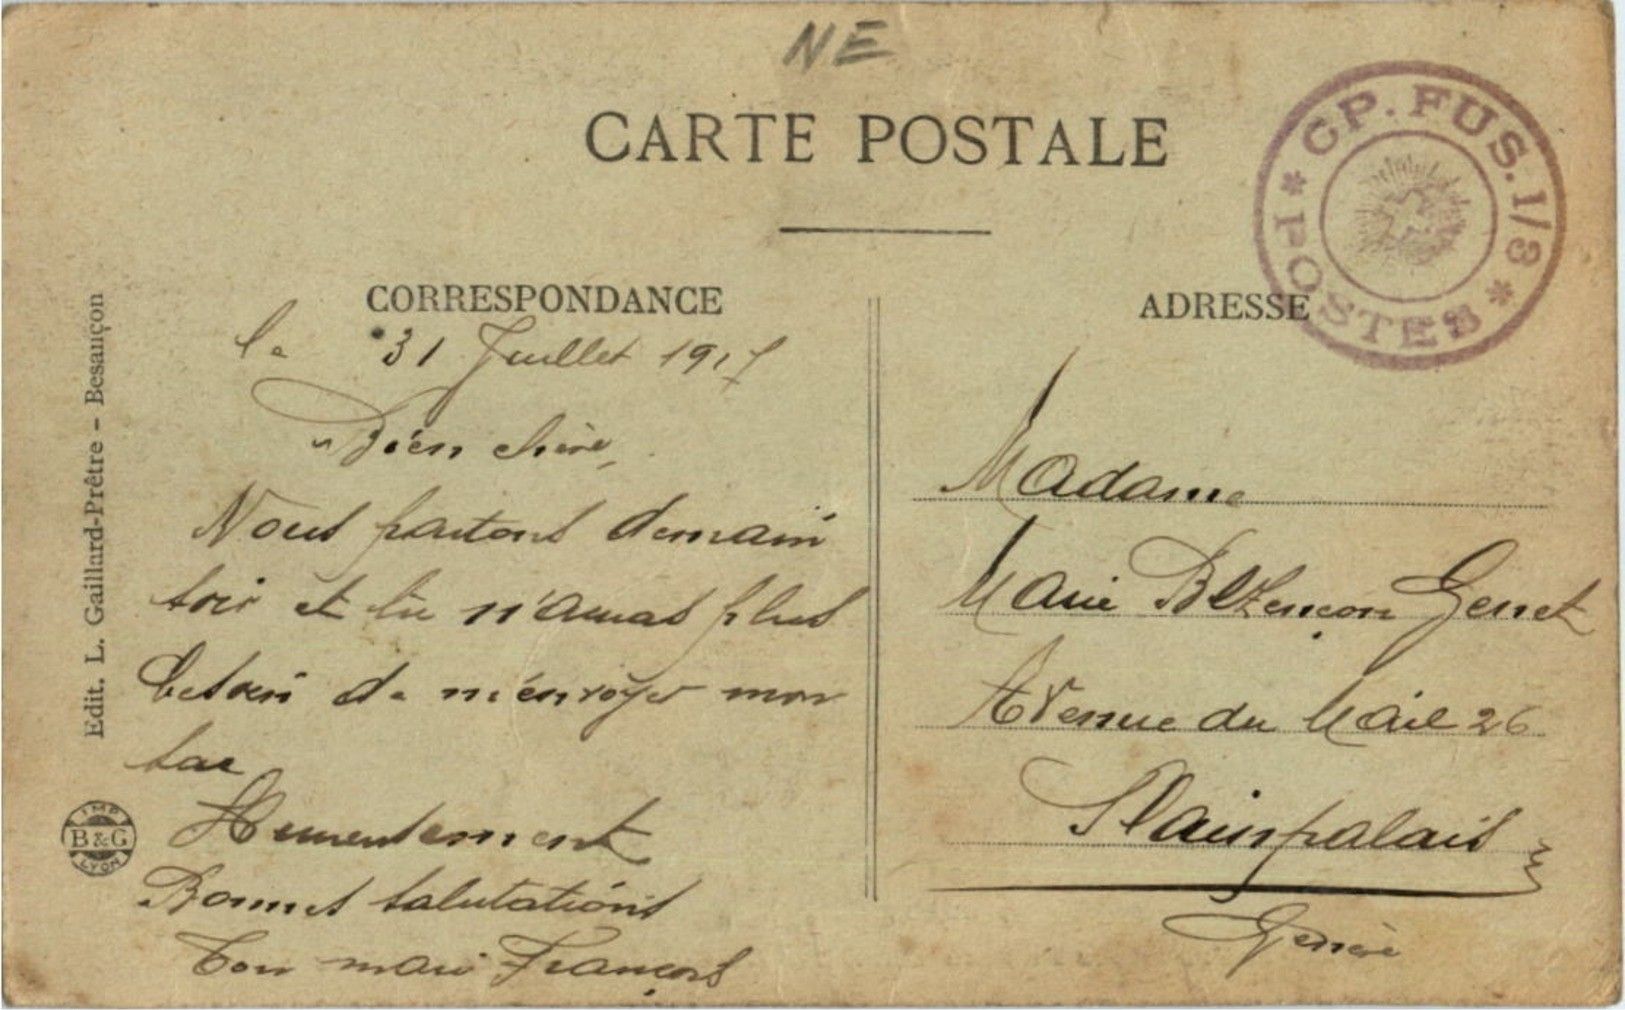 NE
CARTE POSTALE
CP. FUS. I/3
* POSTES *
CORRESPONDANCE
le 31 Juillet 1917
Bien chère,
Nous partons demain
soir et tu n'auras plus
besoin de m'envoyer mon
sac
Bonnes salutations
Ton mari François
ADRESSE
Madame
Marie Bezençon Genet
Avenue du Mail 26
Plainpalais
Genève
Edit. L. Gaillard-Prêtre - Besançon
IMP
B & G
LYON